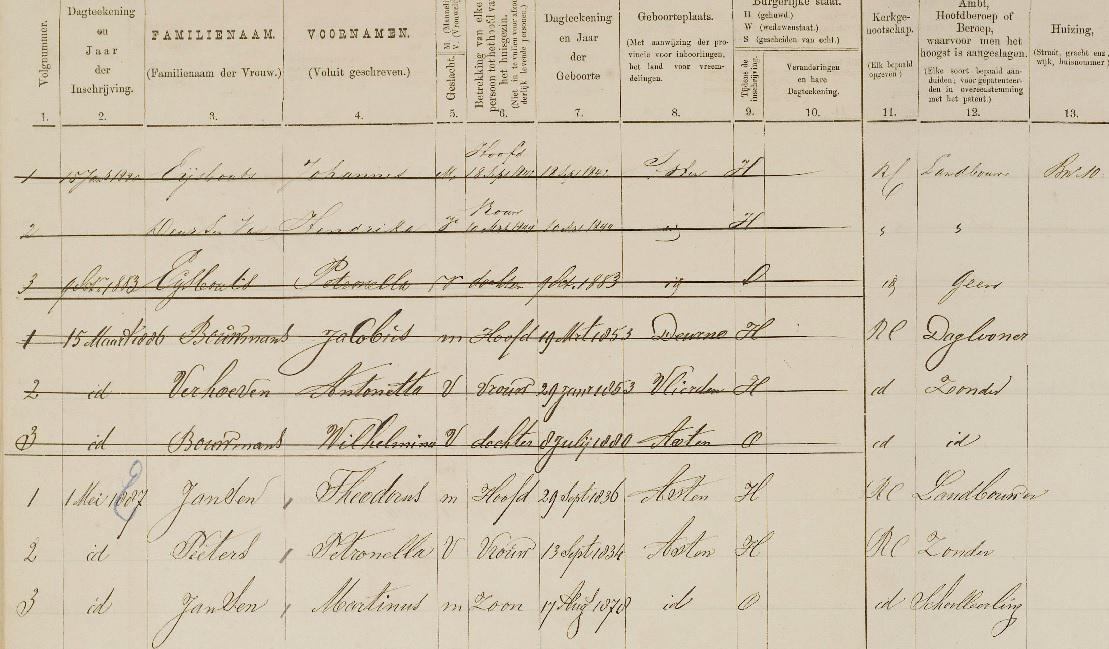 Volgnummer.
Dagteekening en Jaar der Inschrijving.
FAMILIENAAM. (Familienaam der Vrouw.)
VOORNAMEN. (Voluit geschreven.)
Geslacht. M (Mannelijk) V. (Vrouwelijk)
Betrekking van elken persoon tot het hoofd van het huisgezin.
Dagteekening en Jaar der Geboorte
Geboorteplaats. (Met aanwijzing der provincie voor inboorlingen, het land voor vreemdelingen.)
Burgerlijke staat. H (gehuwd.) W (weduwenstaat.) S (gescheiden van echt.)
Tijdens de inschrijving.
Veranderingen en hare Dagteekening.
Kerkgenootschap. (Elk bepaald opgeven)
Ambt, Hoofdberoep of Beroep, waarvoor men het hoogst is aangeslagen. (Elke soort bepaald aanduiden; voor gepatenteerden in overeenstemming met het patent.)
Huizing, (Straat, gracht enz., wijk, huisnummer)
1. 2. 3. 4. 5. 6. 7. 8. 9. 10. 11. 12. 13.
1 Eijsbouts Johannes M Hoofd Asten H Landbouwer
2 Hendrika V H
3 9 Oct. 1883 Eijsbouts Petronella V dochter 9 Oct. 1883 id O id Geen
1 15 Maart 1886 Bouwmans Jacobus m Hoofd 19 Mrt 1853 Deurne H RC Daglooner
2 id Verhoeven Antonetta V Vrouw 29 Janur 1853 Vlierden H id Zonder
3 id Bouwmans Wilhelmina V dochter 8 Julij 1880 Asten O id id
1 1 Mei 1887 Jansen Theodorus m Hoofd 29 Sept 1836 Asten H RC Landbouwer
2 id Pieters Petronella V Vrouw 13 Sept 1834 Asten H RC Zonder
3 id Jansen Martinus m Zoon 17 Aug 1878 id O id Schoolleerling